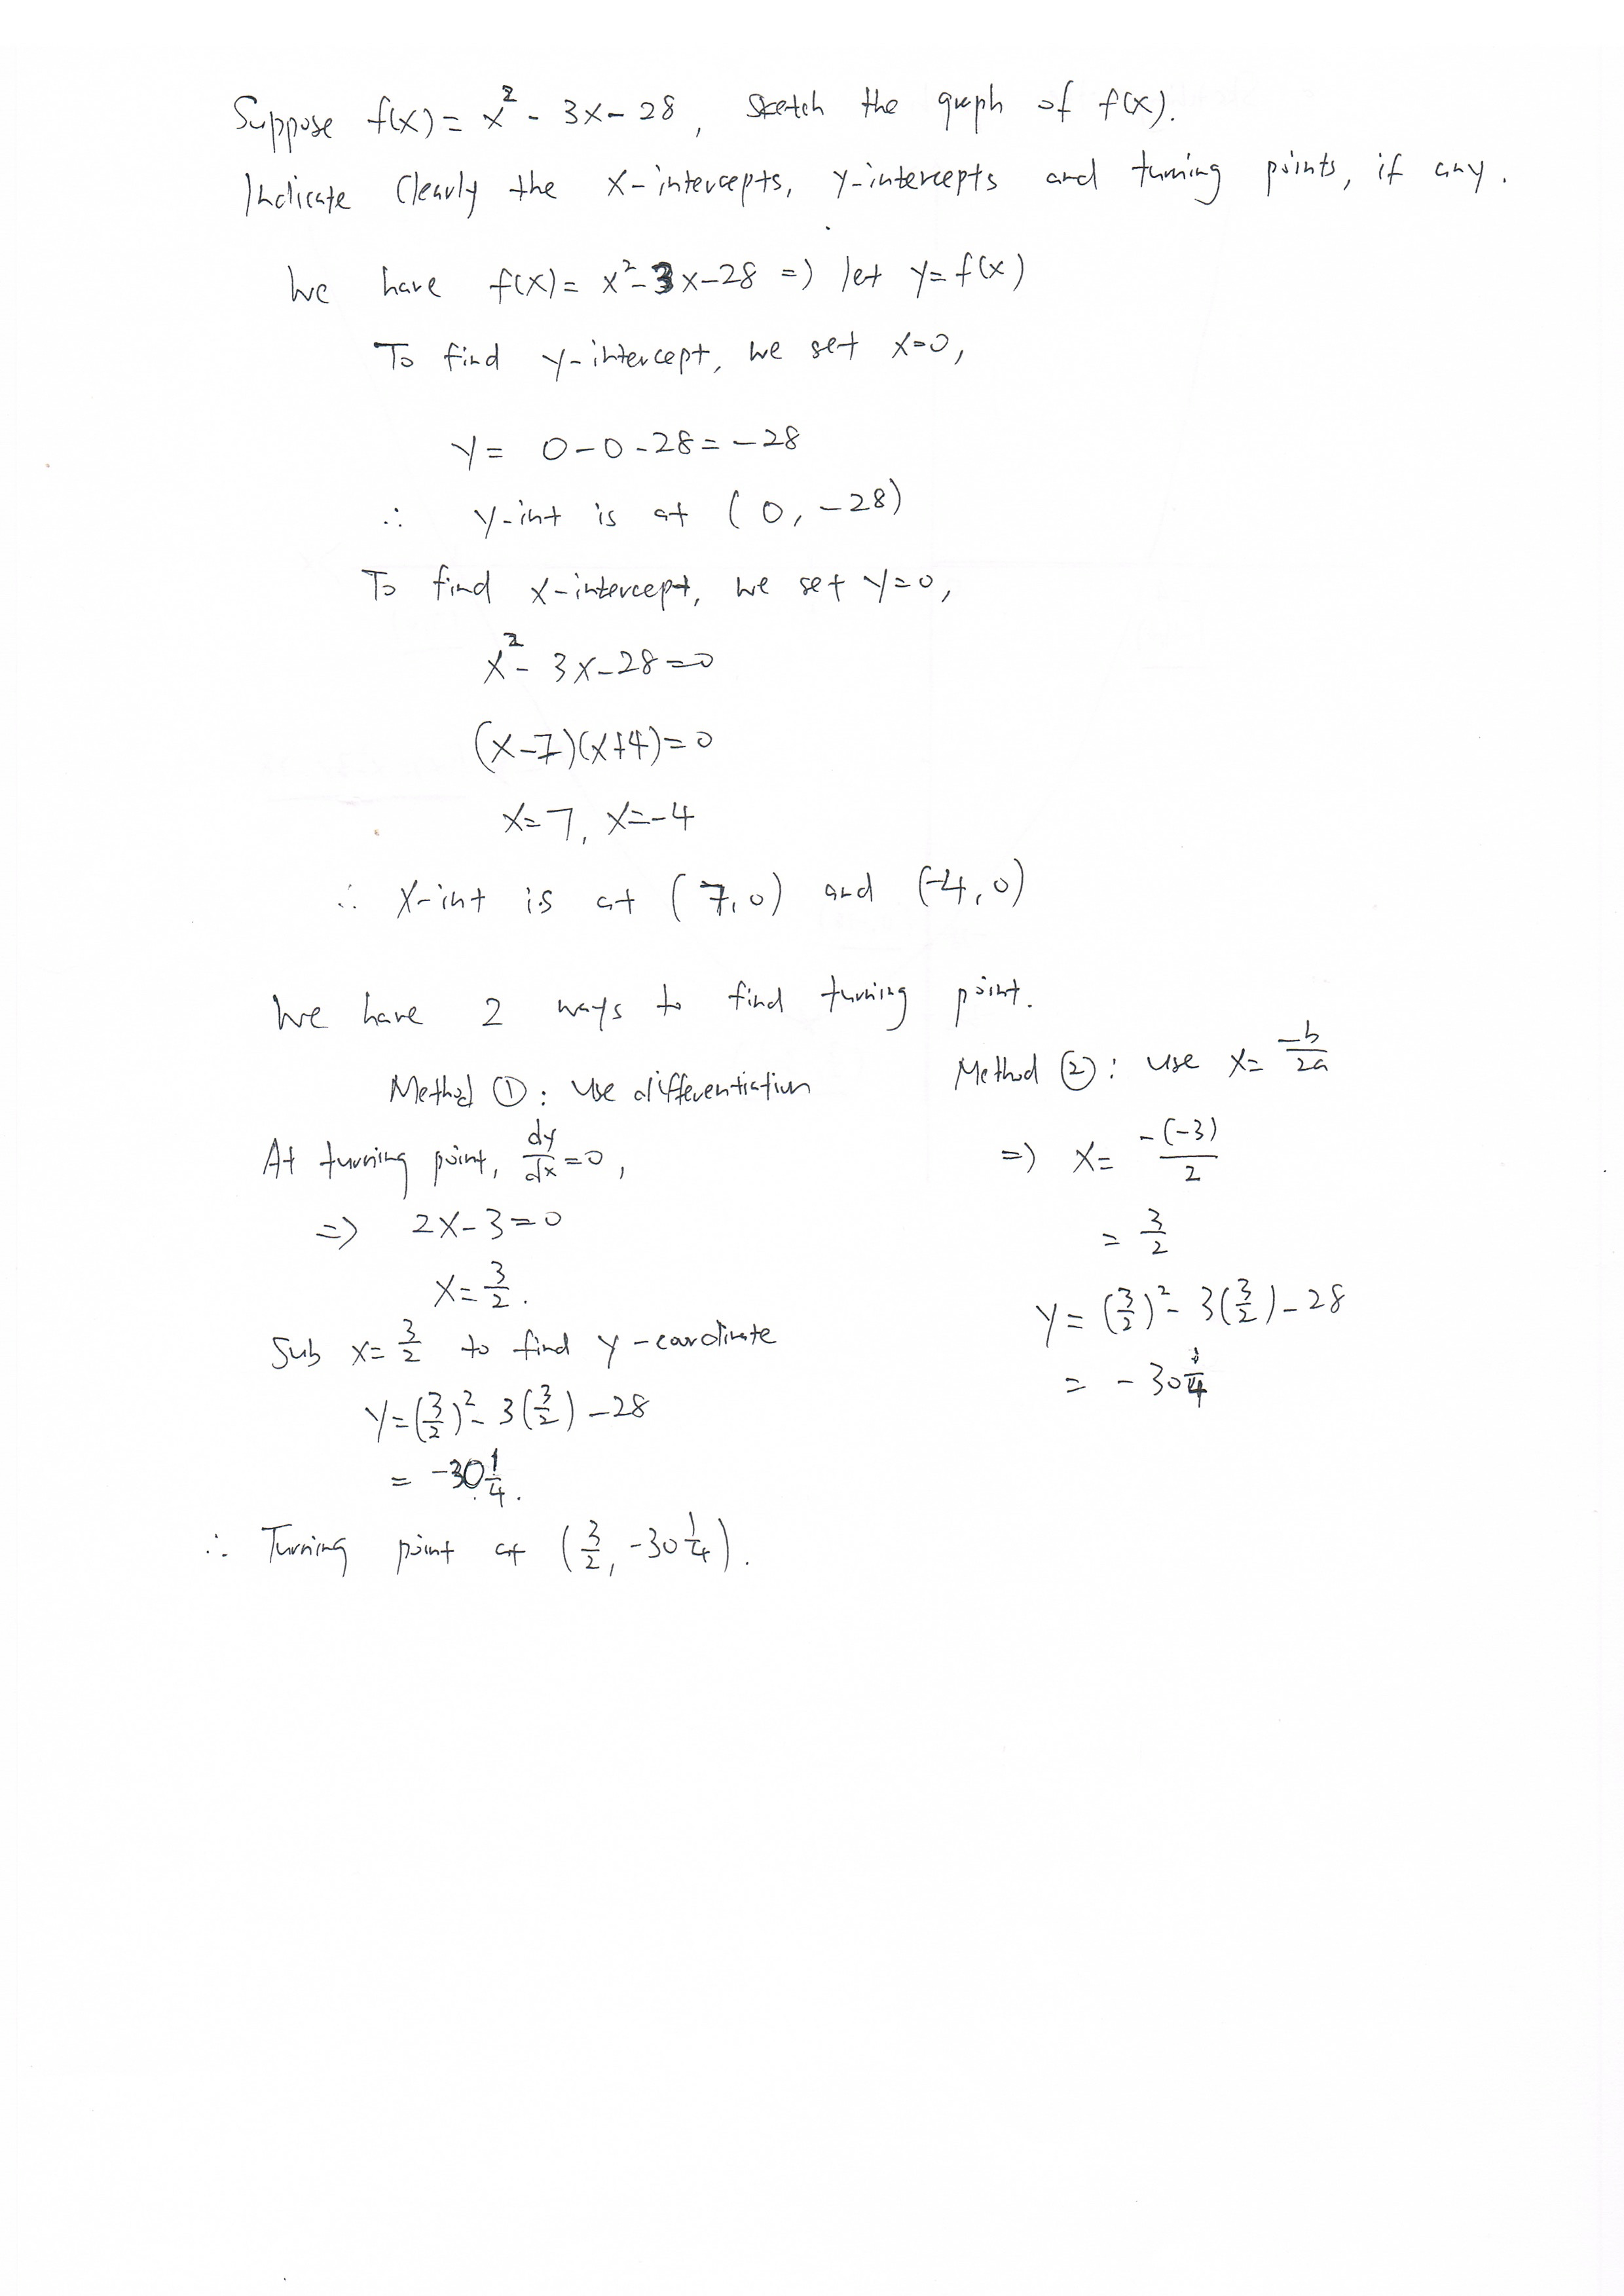 Suppose f(x) = x² - 3x - 28, sketch the graph of f(x).
Indicate clearly the x-intercepts, y-intercepts and turning points, if any.
We have f(x) = x² - 3x - 28 => let y = f(x)
To find y-intercept, we set x=0,
y = 0 - 0 - 28 = -28
∴ y-int is at (0, -28)
To find x-intercept, we set y=0,
x² - 3x - 28 = 0
(x-7)(x+4) = 0
x = 7, x = -4
∴ x-int is at (7,0) and (-4,0)
We have 2 ways to find turning point.
Method ①: use differentiation
At turning point, dy/dx = 0,
=> 2x - 3 = 0
x = 3/2.
Sub x = 3/2 to find y-coordinate
y = (3/2)² - 3(3/2) - 28
= -30 1/4.
∴ Turning point at (3/2, -30 1/4).
Method ②: use x = -b/2a
=> x = -(-3)/2
= 3/2
y = (3/2)² - 3(3/2) - 28
= -30 1/4